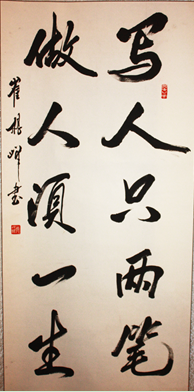 写人只两笔
做人须一生
崔杨晖书